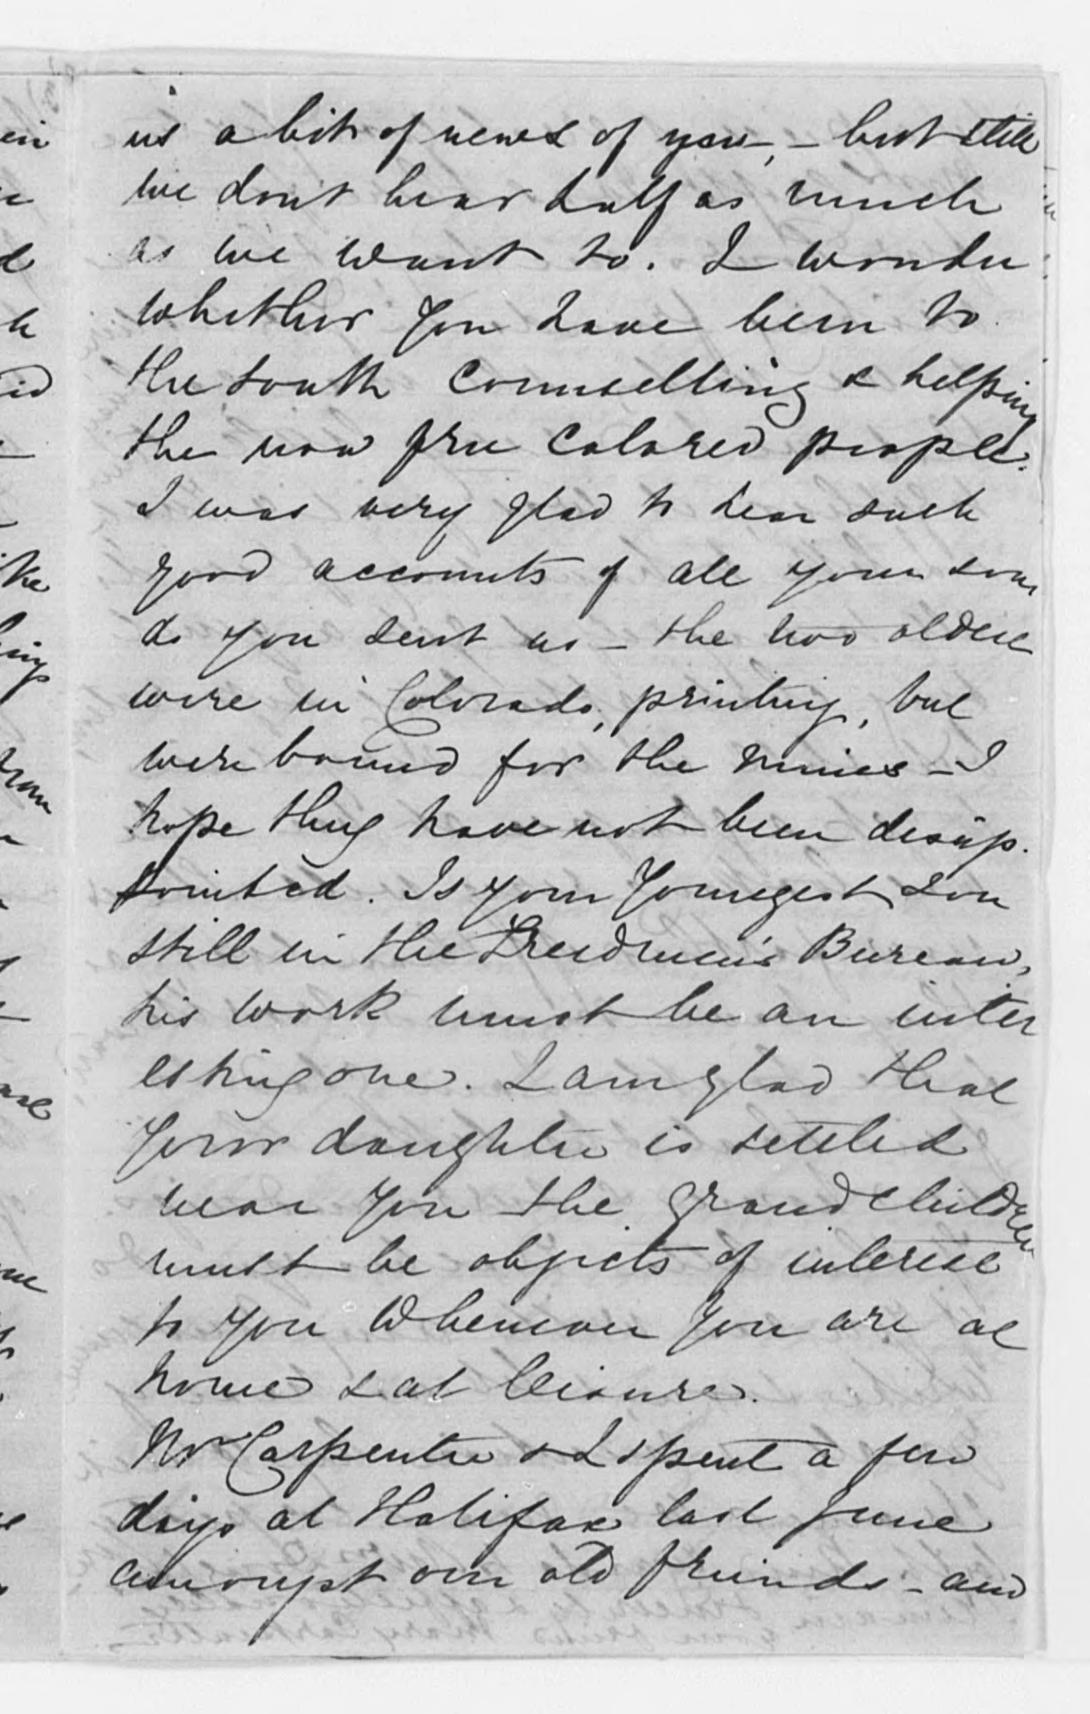 us a bit of news of you, – but still
we don't hear half as much
as we want to. I wonder
whether you have been to
the South counselling & helping
the now free colored people.
I was very glad to hear such
good accounts of all your sons
as you sent us – the two oldest
were in Colorado, printing, but
were bound for the mines – I
hope they have not been disap-
pointed. Is your youngest son
still in the Freedmen's Bureau,
his work must be an inter
esting one. I am glad that
your daughter is settled
near you the grandchildren
must be objects of interest
to you whenever you are at
home & at leisure.
Mr Carpenter & I spent a few
days at Halifax last June
amongst our old friends – and